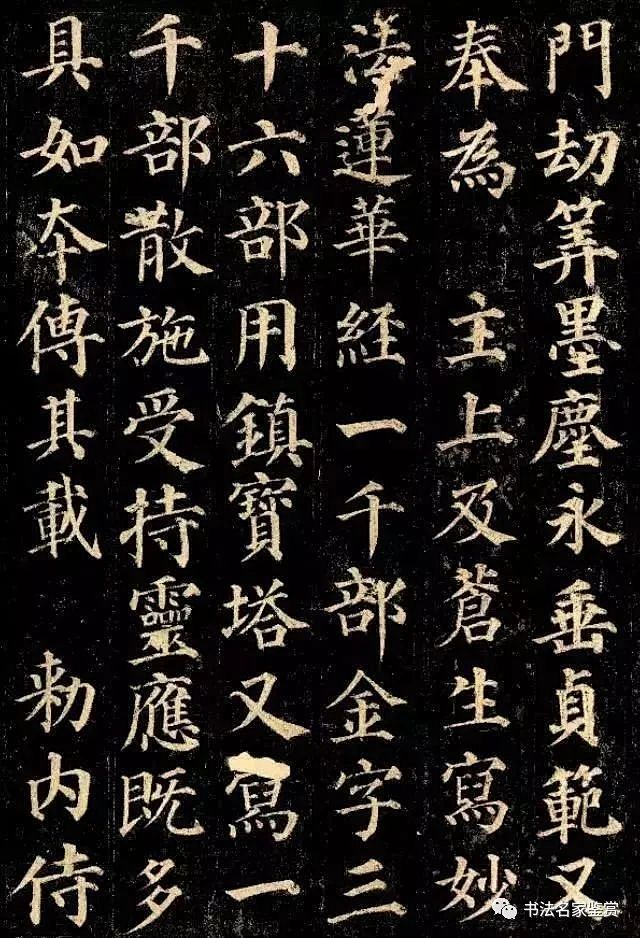 門劫筭墨塵永垂貞範又
奉為 主上及蒼生寫妙
法蓮華経一千部金字三
十六部用鎮寶塔又寫一
千部散施受持靈應既多
具如夲傳其載 勑内侍
书法名家鉴赏